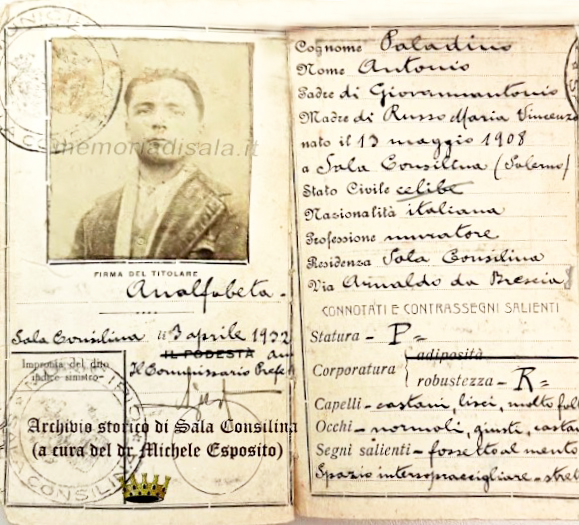 MUNICIPIO
SALA CONSILINA
memoriadisala.it
FIRMA DEL TITOLARE
Analfabeta.
Sala Consilina li 3 aprile 1932
IL PODESTÀ
Il Commissario Pref
Impronta del dito
indice sinistro
MUNICIPIO
SALA CONSILINA
Archivio storico di Sala Consilina
(a cura del dr. Michele Esposito)
Cognome Paladino
Nome Antonio
Padre di Giovannantonio
Madre di Russo Maria Vincenza
nato il 13 maggio 1908
a Sala Consilina (Salerno)
Stato Civile celibe
Nazionalità italiana
Professione muratore
Residenza Sala Consilina
Via Arnaldo da Brescia
CONNOTATI E CONTRASSEGNI SALIENTI
Statura - P =
Corporatura adiposità
robustezza - R =
Capelli - castani, lisci, molto fol
Occhi - normali, giusti, casta
Segni salienti - fossetto al mento
Spazio intersopraccigliare - stre